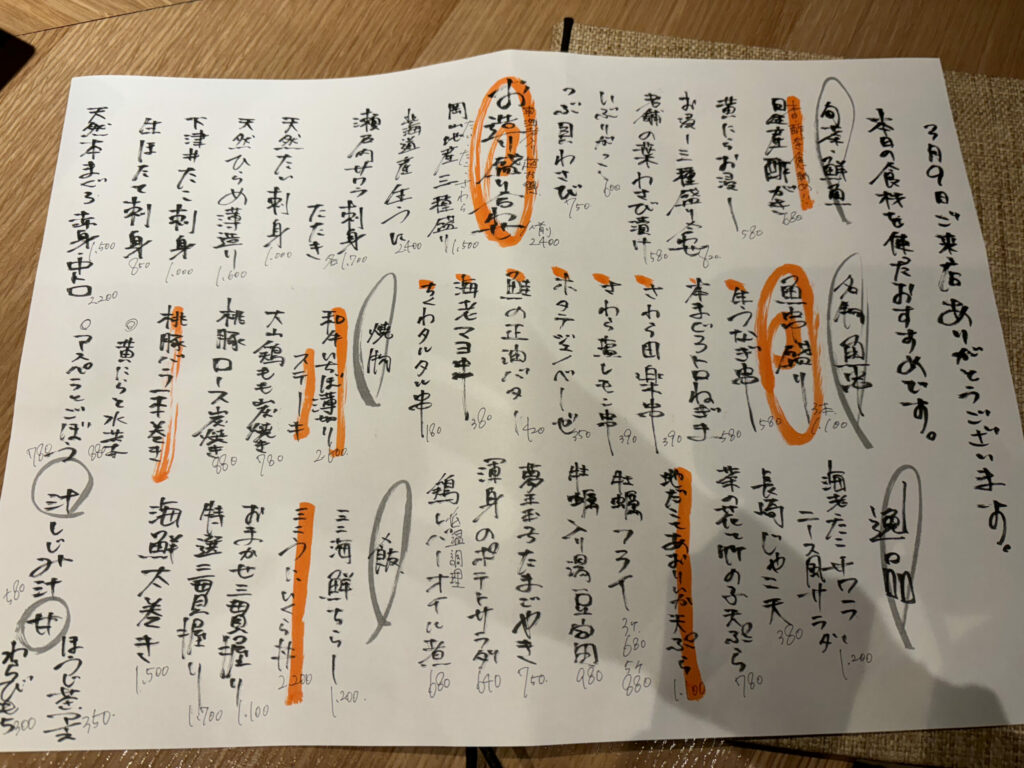 3月9日ご来店ありがとうございます。
本日の食材を使たおすすめです。
旬菜鮮魚
日生産酢がき
680
黄にらお浸し
580
お浸し三種盛り
820
老舗の葉わさび漬け
580
いぶりがっこ
600
つぶ貝わさび
750
お造り盛り合わせ
2400
岡山地産三種盛り
1,500
北海道産生うに
2400
瀬戸内サワラ刺身
1,700
たたき
天然たい刺身
1,000
天然ひらめ薄造り
1,600
下津井たこ刺身
1,000
生ほたて刺身
850
1,500
天然本まぐろ赤身・中トロ
2,200
名物魚串
魚串盛り
3本
1,100
生つなぎ串
580
本まぐろトロねぎ
580
さわら田楽串
390
さわら藁レモン串
390
ホタテジェノベーゼ
350
鮭の正油バター
420
海老マヨ串
380
ちくわタルタル串
180
焼物
和牛いちぼ薄切り
ステーキ
2,600
大山鶏もも炭焼き
980
桃豚ロース炭焼き
880
桃豚バラ二本巻き
◎黄にらと水菜
880
○アスペラとごぼう
788
逸品
海老たこサワラ
ニース風サラダ
1,200
長崎じゃこ天
380
菜の花と竹のふ天ぷら
780
地だてあおりいか天ぷら
牡蠣フライ
3ケ680
5ケ880
牡蠣入り湯豆腐
980
夢王玉子たまごやき
750
渾身のポテトサラダ
640
鶏レバーオイル煮
低温調理
680
飯
ミニ海鮮ちらし
1,200
ミニうにいくら丼
2,200
おまかせ三貫握り
1,100
特選二貫握り
1,700
海鮮太巻き
1,500
汁
しじみ汁
580
甘
ほうじ茶
350
わらびもち
300